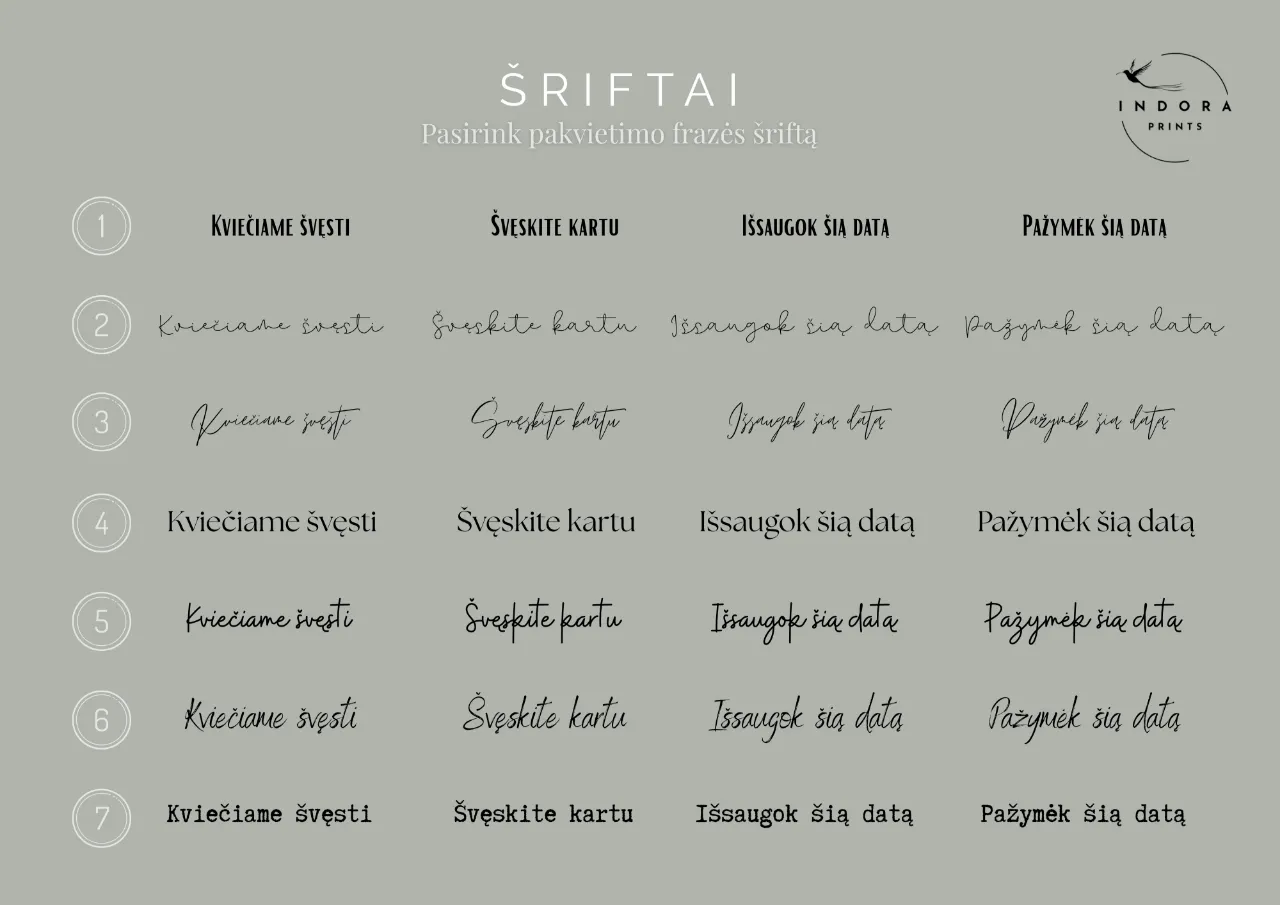 ŠRIFTAI
Pasirink pakvietimo frazės šriftą
INDORA
PRINTS
1 Kviečiame švęsti Švęskite kartu Išsaugok šią datą Pažymėk šią datą
2 Kviečiame švęsti Švęskite kartu Išsaugok šią datą Pažymėk šią datą
3 Kviečiame švęsti Švęskite kartu Išsaugok šią datą Pažymėk šią datą
4 Kviečiame švęsti Švęskite kartu Išsaugok šią datą Pažymėk šią datą
5 Kviečiame švęsti Švęskite kartu Išsaugok šią datą Pažymėk šią datą
6 Kviečiame švęsti Švęskite kartu Išsaugok šią datą Pažymėk šią datą
7 Kviečiame švęsti Švęskite kartu Išsaugok šią datą Pažymėk šią datą